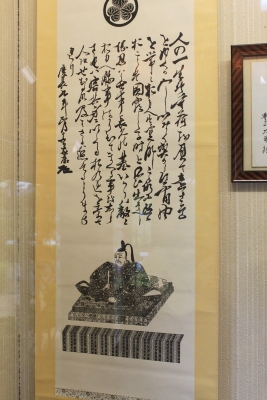 人の一生は重荷を負て遠き道
をゆくがごとしいそぐべからず不自由
を常とおもへば不足なしこころに望
おこらば困窮したる時を思ひ出すべし
堪忍は無事長久の基いかりは敵と
おもへ勝事ばかり知てまくる事を
しらざれば害其身にいたるおのれを責て
人をせむるな及ばざるは過たるより
まされり
慶長九年